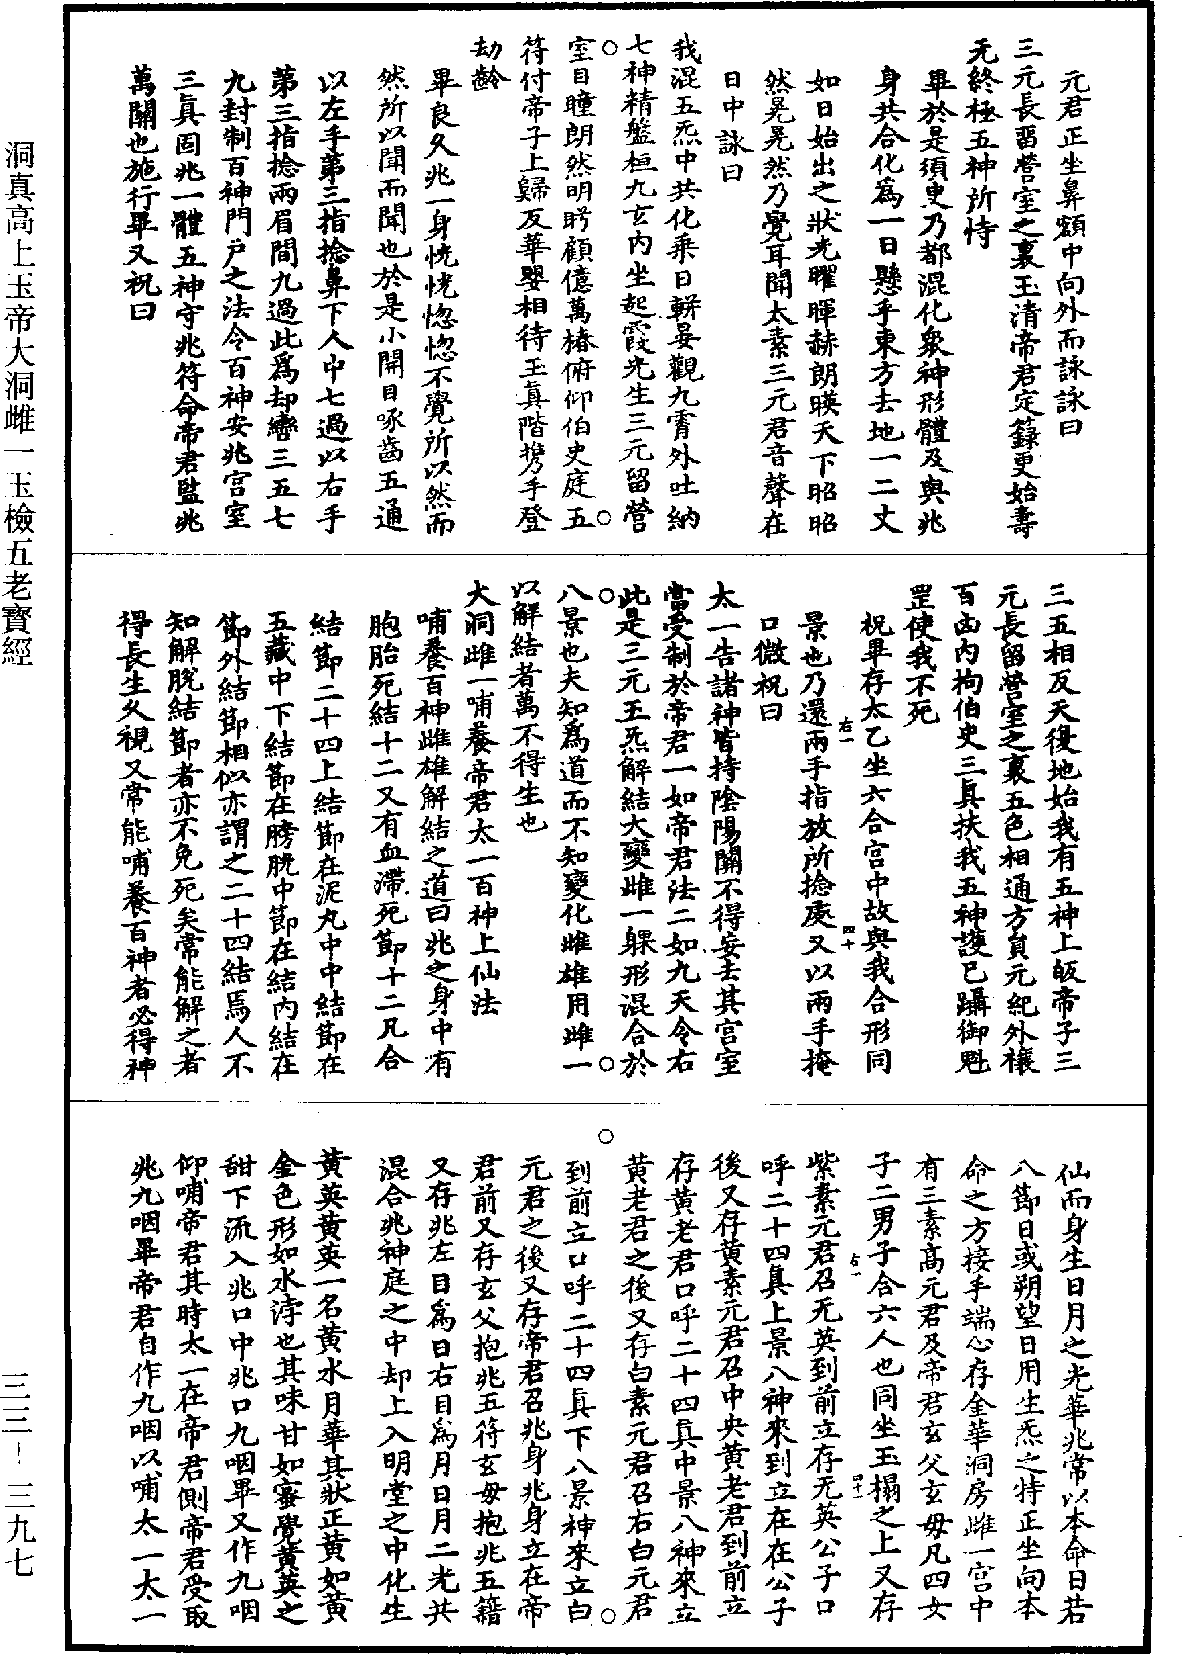 元君正坐鼻頞中向外而詠詠曰
三元長留營室之裏玉清帝君定籙更始壽
无終極五神所恃
畢於是須臾乃都混化衆神形體及與兆
身共合化爲一日懸乎東方去地一二丈
如日始出之狀光曜暉赫朗暎天下昭昭
然晃晃然乃覺耳聞太素三元君音聲在
日中詠曰
我混五炁中共化乘日軿晏觀九霄外吐納
七神精盤桓九玄内坐起霞光生三元留營
室目瞳朗然明眄顧億萬椿俯仰伯史庭五
符付帝子上歸反華嬰相待玉真階攜手登
劫齡
畢良久兆一身恍恍惚惚不覺所以然而
然所以聞而聞也於是小開目啄齒五通
以左手第三指捻鼻下人中七過以右手
第三指捻兩眉間九過此爲却轡三五七
九封制百神門户之法令百神安兆宮室
三真固兆一體五神守兆符命帝君監兆
萬關也施行畢又祝曰
三五相反天復地始我有五神上皈帝子三
元長留營室之裏五色相通方負元紀外禳
百凶内拘伯史三真扶我五神護已躡御魁
罡使我不死
祝畢存太乙坐六合宮中故與我合形同
景也乃還兩手指放所捻處又以兩手掩
口微祝曰
太一告諸神皆持陰陽關不得妄去其宮室
當受制於帝君一如帝君法二如九天令右
此是三元玉炁解結大變雌一躶形混合於
八景也夫知爲道而不知變化雌雄用雌一
以解結者萬不得生也
大洞雌一哺養帝君太一百神上仙法
哺養百神雌雄解結之道曰兆之身中有
胞胎死結十二又有血滯死節十二凡合
結節二十四上結節在泥丸中中結節在
五藏中下結節在膀胱中節在結内結在
節外結節相似亦謂之二十四結焉人不
知解脱結節者亦不免死矣常能解之者
得長生久視又常能哺養百神者必得神
仙而身生日月之光華兆常以本命日若
八節日或朔望日用生炁之時正坐向本
命之方接手端心存金華洞房雌一宮中
有三素高元君及帝君玄父玄母凡四女
子二男子合六人也同坐玉榻之上又存
紫素元君召无英到前立存无英公子口
呼二十四真上景八神來到立在在公子
後又存黄素元君召中央黄老君到前立
存黄老君口呼二十四真中景八神來立
黄老君之後又存白素元君召右白元君
到前立口呼二十四真下八景神來立白
元君之後又存帝君召兆身兆身立在帝
君前又存玄父抱兆五符玄母抱兆五籍
又存兆左目爲日右目爲月日月二光共
混合兆神庭之中却上入明堂之中化生
黄英黄英一名黄水月華其狀正黄如黄
金色形如水渟也其味甘如蜜覺黄英之
甜下流入兆口中兆口九咽畢又作九咽
仰哺帝君其時太一在帝君側帝君受取
兆九咽畢帝君自作九咽以哺太一太一
洞真高上玉帝大洞雌一玉檢五老寶經
三三－三九七